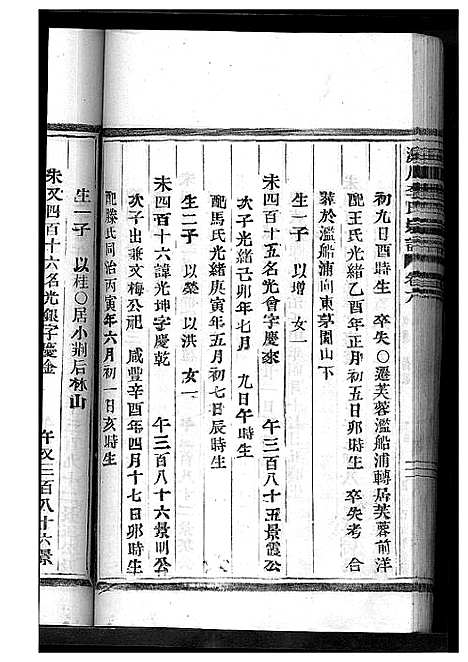 初九日酉時生 卒失〇遷芙蓉濫船浦轉居芙蓉前洋
配王氏光緒乙酉年正月初五日卯時生 卒失考 合
葬於濫船浦向東茅園山下
生一子 以增 女一
未四百十五名光會字慶來 午三百八十五景霞公
次子光緒己卯年七月 九日午時生
配馬氏光緒庚寅年五月初七日辰時生
生二子 以榮 以洪 女一
未四百十六諱光坤字慶乾 午三百八十六景明公
次子出兼文梅公祀 咸豐辛酉年四月十七日卯時生
配滕氏同治丙寅年六月初一日亥時生
生一子 以桂〇居小荊后林山
未又四百十六名光銀字慶金 午又三百八十六景
李氏宗譜 卷八